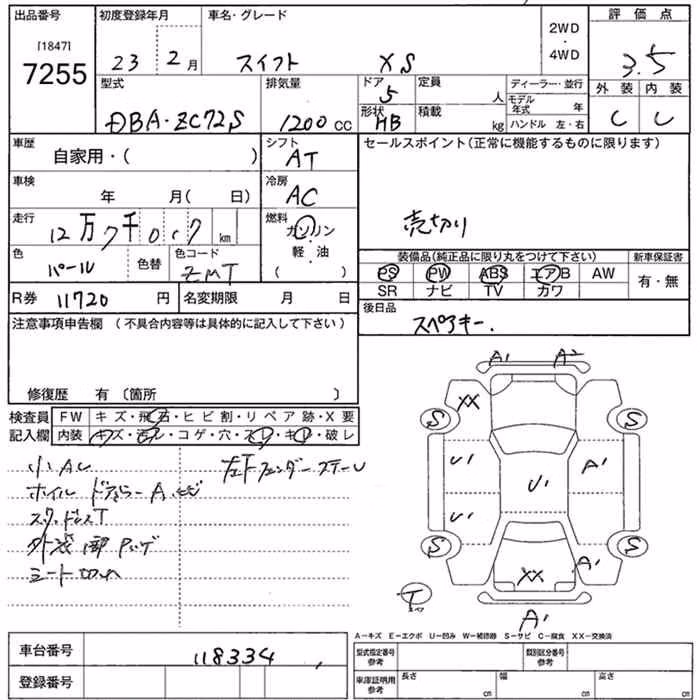 出品番号 初度登録年月 車名・グレード 2WD・4WD 評価点
[1847] 7255 23 2月 スイフト XS 3.5
型式 排気量 ドア 5 定員 人 ディーラー・並行 外装 内装
DBA・ZC72S 1200cc 形状 HB 積載 kg モデル年式 年 ハンドル 左・右 C C
車歴 自家用・( ) シフト AT セールスポイント(正常に機能するものに限ります)
車検 年 月( 日) 冷房 AC
走行 12万7千 km 燃料 ガソリン・軽油 ( ) 売切り
色 パール 色替 色コード ZMT 装備品(純正品に限り丸をつけて下さい) 新車保証書
PS PW ABS エアB AW 有・無
SR ナビ TV カワ
R券 11720円 名変期限 月 日 後日品
注意事項申告欄 (不具合内容等は具体的に記入して下さい) スペアキー.
修復歴 有 〔箇所 〕
A1 A2
検査員 FW キズ・飛石・ヒビ割・リペア跡・X要 XX
記入欄 内装 キズ・汚レ・コゲ・穴・スレ・キレ・破レ S S
小AU 左下フェンダーステー U
U1 A1
ホイル U1
U1
外装 部
S S
シート切れ A1
XX
T
A1
A-キズ E-エクボ U-凹み W-補修跡 S-サビ C-腐食 XX-交換済
車台番号 118334 型式指定番号 参考 類別区分番号 参考
登録番号 車庫証明用 参考 長さ cm 幅 cm 高さ cm